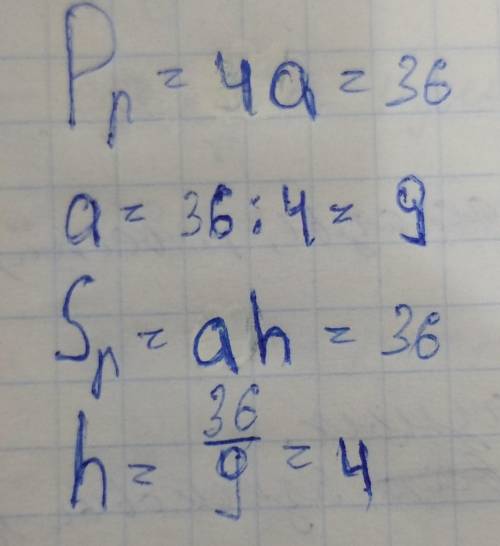 Pр = 4a = 36
a = 36 : 4 = 9
Sр = ah = 36
h = 36/9 = 4